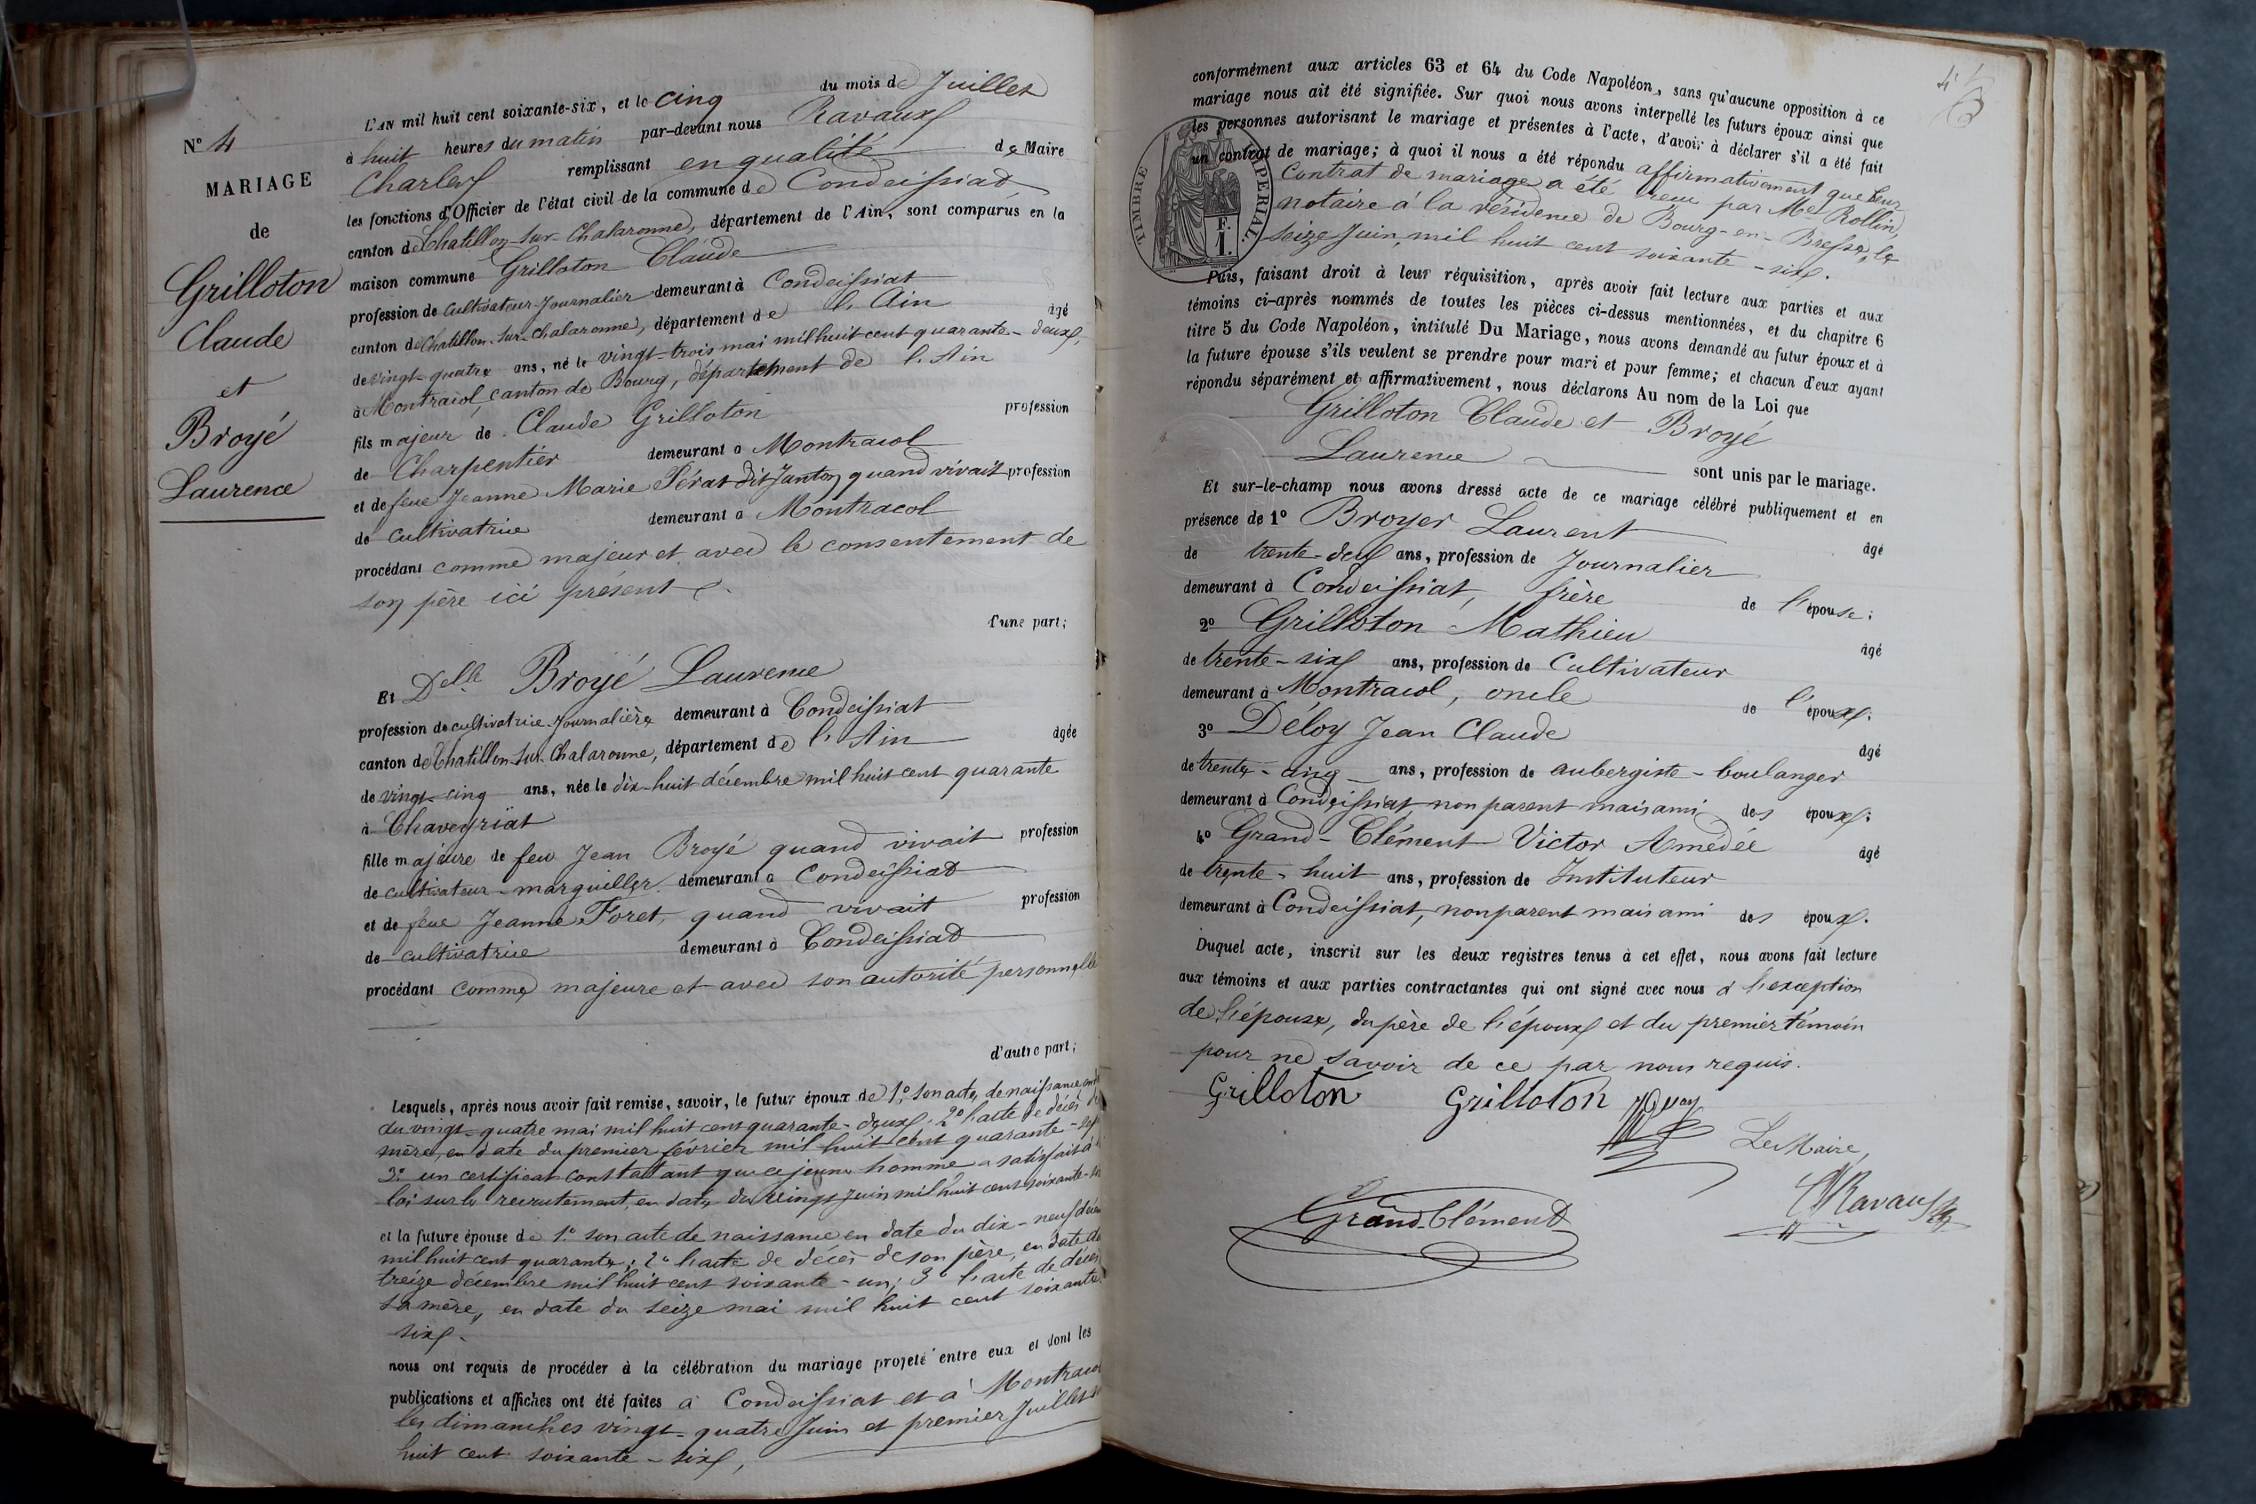 N° 4
MARIAGE
de
Grilloton
Claude
et
Broyé
Laurence
L'AN mil huit cent soixante-six, et le cinq du mois de Juillet
à huit heures du matin par-devant nous Ravaux
Charles remplissant en qualité de Maire
les fonctions d'Officier de l'état civil de la commune de Condeissiat
canton de Chatillon-sur-Chalaronne, département de l'Ain, sont comparus en la
maison commune Grilloton Claude
profession de cultivateur-Journalier demeurant à Condeissiat
canton de Chatillon-sur-Chalaronne, département de l'Ain âgé
de vingt-quatre ans, né le vingt-trois mai mil huit cent quarante-deux,
à Montracol, canton de Bourg, département de l'Ain
fils majeur de Claude Grilloton profession
de Charpentier demeurant à Montracol
et de feue Jeanne Marie Pérat dit Janton, quand vivait profession
de cultivatrice demeurant à Montracol
procédant comme majeur et avec le consentement de
son père ici présent
d'une part;
Et Delle Broyé Laurence
profession de cultivatrice-Journalière demeurant à Condeissiat
canton de Chatillon-sur-Chalaronne, département de l'Ain âgée
de vingt-cinq ans, née le dix-huit décembre mil huit cent quarante
à Chaveyriat
fille majeure de feu Jean Broyé quand vivait profession
de cultivateur-marguiller demeurant à Condeissiat
et de feue Jeanne Foret, quand vivait profession
de cultivatrice demeurant à Condeissiat
procédant comme majeure et avec son autorité personnelle
d'autre part;
Lesquels, après nous avoir fait remise, savoir, le futur époux de 1° son acte de naissance en
du vingt-quatre mai mil huit cent quarante-deux; 2° l'acte de décès de
mère, en date du premier février mil huit cent quarante-
3° un certificat constatant que ce jeune homme a satisfait à
loi sur le recrutement, en date du vingt Juin mil huit cent soixante-
et la future épouse de 1° son acte de naissance en date du dix-neuf
mil huit cent quarante; 2° l'acte de décès de son père, en date du
treize décembre mil huit cent soixante-un; 3° l'acte de décès
sa mère, en date du seize mai mil huit cent soixante
six.
nous ont requis de procéder à la célébration du mariage projeté entre eux et dont les
publications et affiches ont été faites à Condeissiat et à Montracol
les dimanches vingt-quatre Juin et premier Juillet
huit cent soixante-six,
conformément aux articles 63 et 64 du Code Napoléon, sans qu'aucune opposition à ce
mariage nous ait été signifiée. Sur quoi nous avons interpellé les futurs époux ainsi que
les personnes autorisant le mariage et présentes à l'acte, d'avoir à déclarer s'il a été fait
un contrat de mariage; à quoi il nous a été répondu affirmativement que leur
contrat de mariage a été reçu par Me Rollin,
notaire à la résidence de Bourg-en-Bresse, le
seize Juin, mil huit cent soixante-six.
TIMBRE IMPERIAL.
F.
1.
Puis, faisant droit à leur réquisition, après avoir fait lecture aux parties et aux
témoins ci-après nommés de toutes les pièces ci-dessus mentionnées, et du chapitre 6
titre 5 du Code Napoléon, intitulé Du Mariage, nous avons demandé au futur époux et à
la future épouse s'ils veulent se prendre pour mari et pour femme; et chacun d'eux ayant
répondu séparément et affirmativement, nous déclarons Au nom de la Loi que
Grilloton Claude et Broyé
Laurence sont unis par le mariage.
Et sur-le-champ nous avons dressé acte de ce mariage célébré publiquement et en
présence de 1° Broyer Laurent âgé
de trente-deux ans, profession de Journalier
demeurant à Condeissiat, frère de l'épouse;
2° Grilloton Mathieu âgé
de trente-six ans, profession de Cultivateur
demeurant à Montracol, oncle de l'époux;
3° Déloy Jean Claude âgé
de trente-cinq ans, profession de aubergiste-boulanger
demeurant à Condeissiat non parent mais ami des époux;
4° Grand-Clément Victor Amédée âgé
de trente-huit ans, profession de Instituteur
demeurant à Condeissiat, non parent mais ami des époux.
Duquel acte, inscrit sur les deux registres tenus à cet effet, nous avons fait lecture
aux témoins et aux parties contractantes qui ont signé avec nous à l'exception
de l'épouse, du père de l'époux et du premier témoin
pour ne savoir de ce par nous requis.
Grilloton Grilloton
Le Maire,
Grand-Clément Ravaux